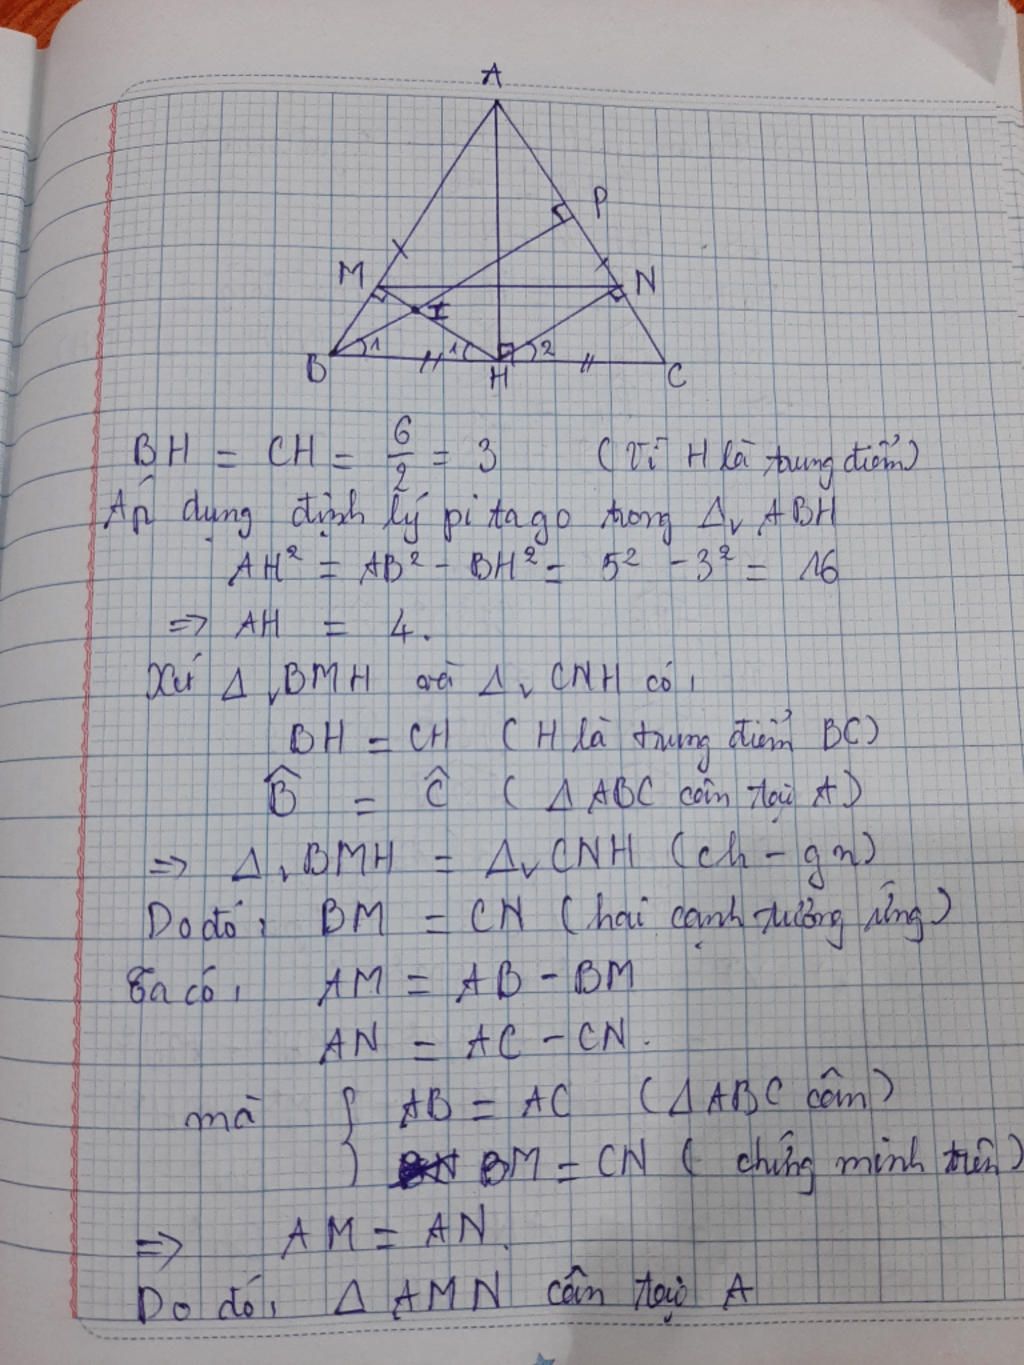 A
P
M
N
I
1
1
2
B
H
C
BH = CH = 6/2 = 3 (Vì H là trung điểm)
Áp dụng định lý pi tago trong Δv ABH
AH² = AB² - BH² = 5² - 3² = 16
=> AH = 4.
Xét Δv BMH và Δv CNH có:
BH = CH (H là trung điểm BC)
B̂ = Ĉ (Δ ABC cân tại A)
=> Δv BMH = Δv CNH (ch - gn)
Do đó: BM = CN (hai cạnh tương ứng)
Ta có: AM = AB - BM
AN = AC - CN.
mà { AB = AC (Δ ABC cân)
BM = CN (chứng minh trên)
=> AM = AN.
Do đó: Δ AMN cân tại A